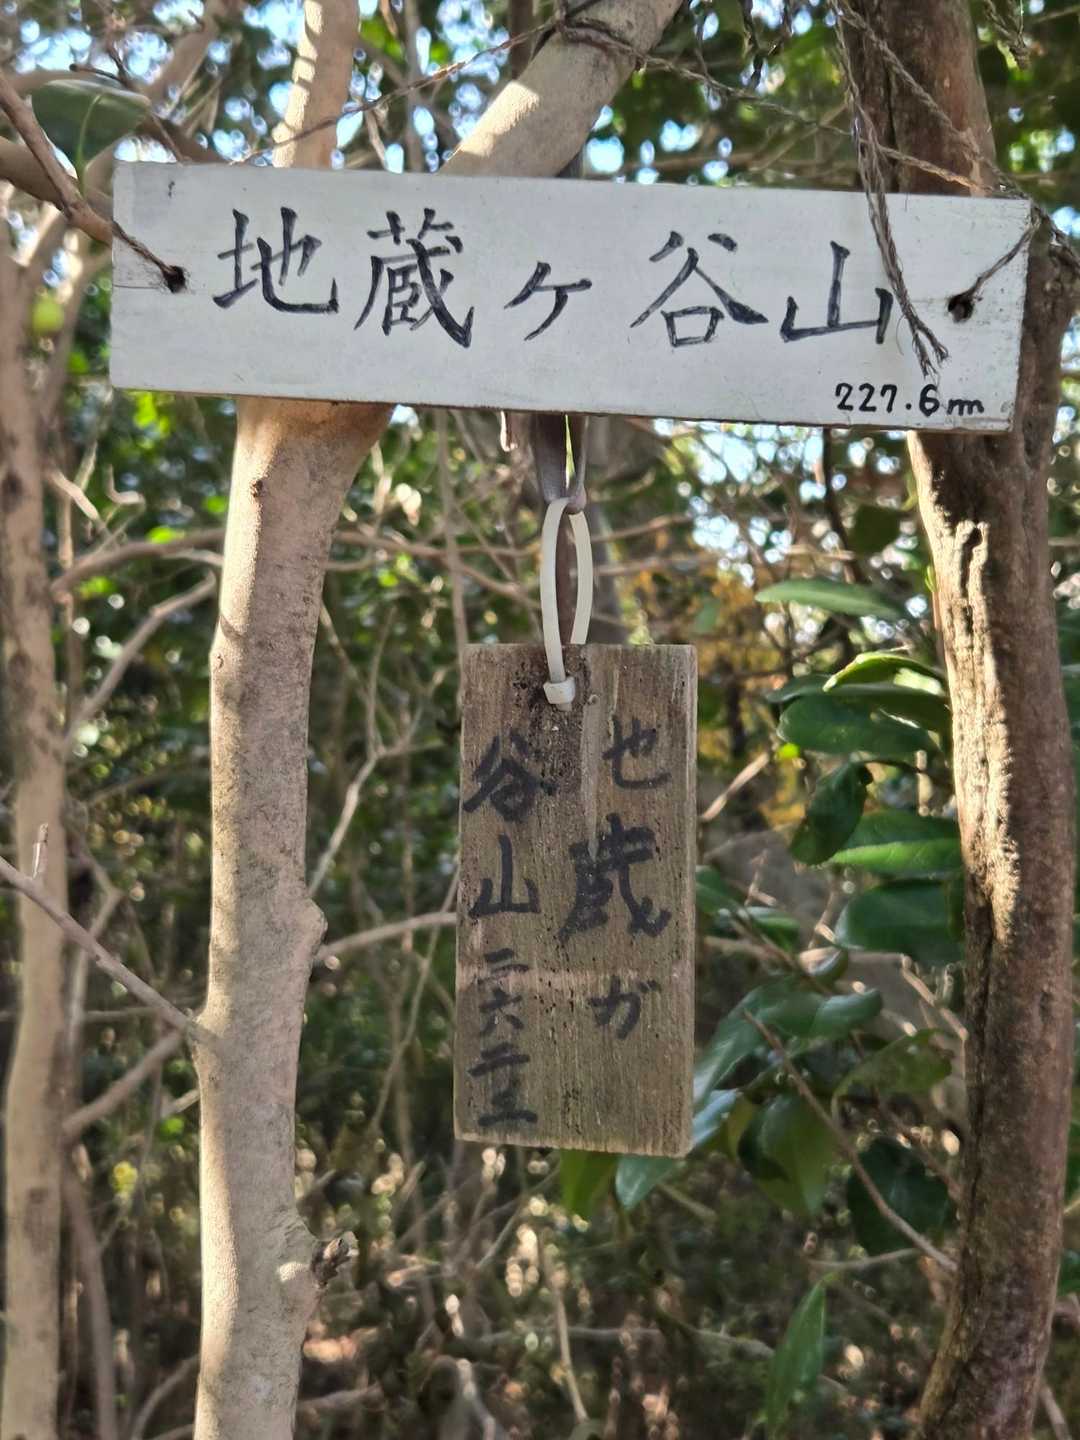 地蔵ヶ谷山
227.6m
也蔵ガ
谷山二六二三